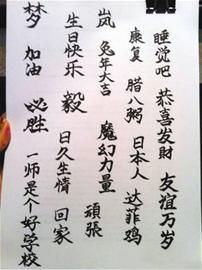 睡觉吧
恭喜发財
友谊万岁
康复
腊八粥
日本人
达菲鸡
岚
兔年大吉
魔幻力量
頑張
生日快乐
毅
日久生情
回家
梦
加油
必胜
一师是个好学校